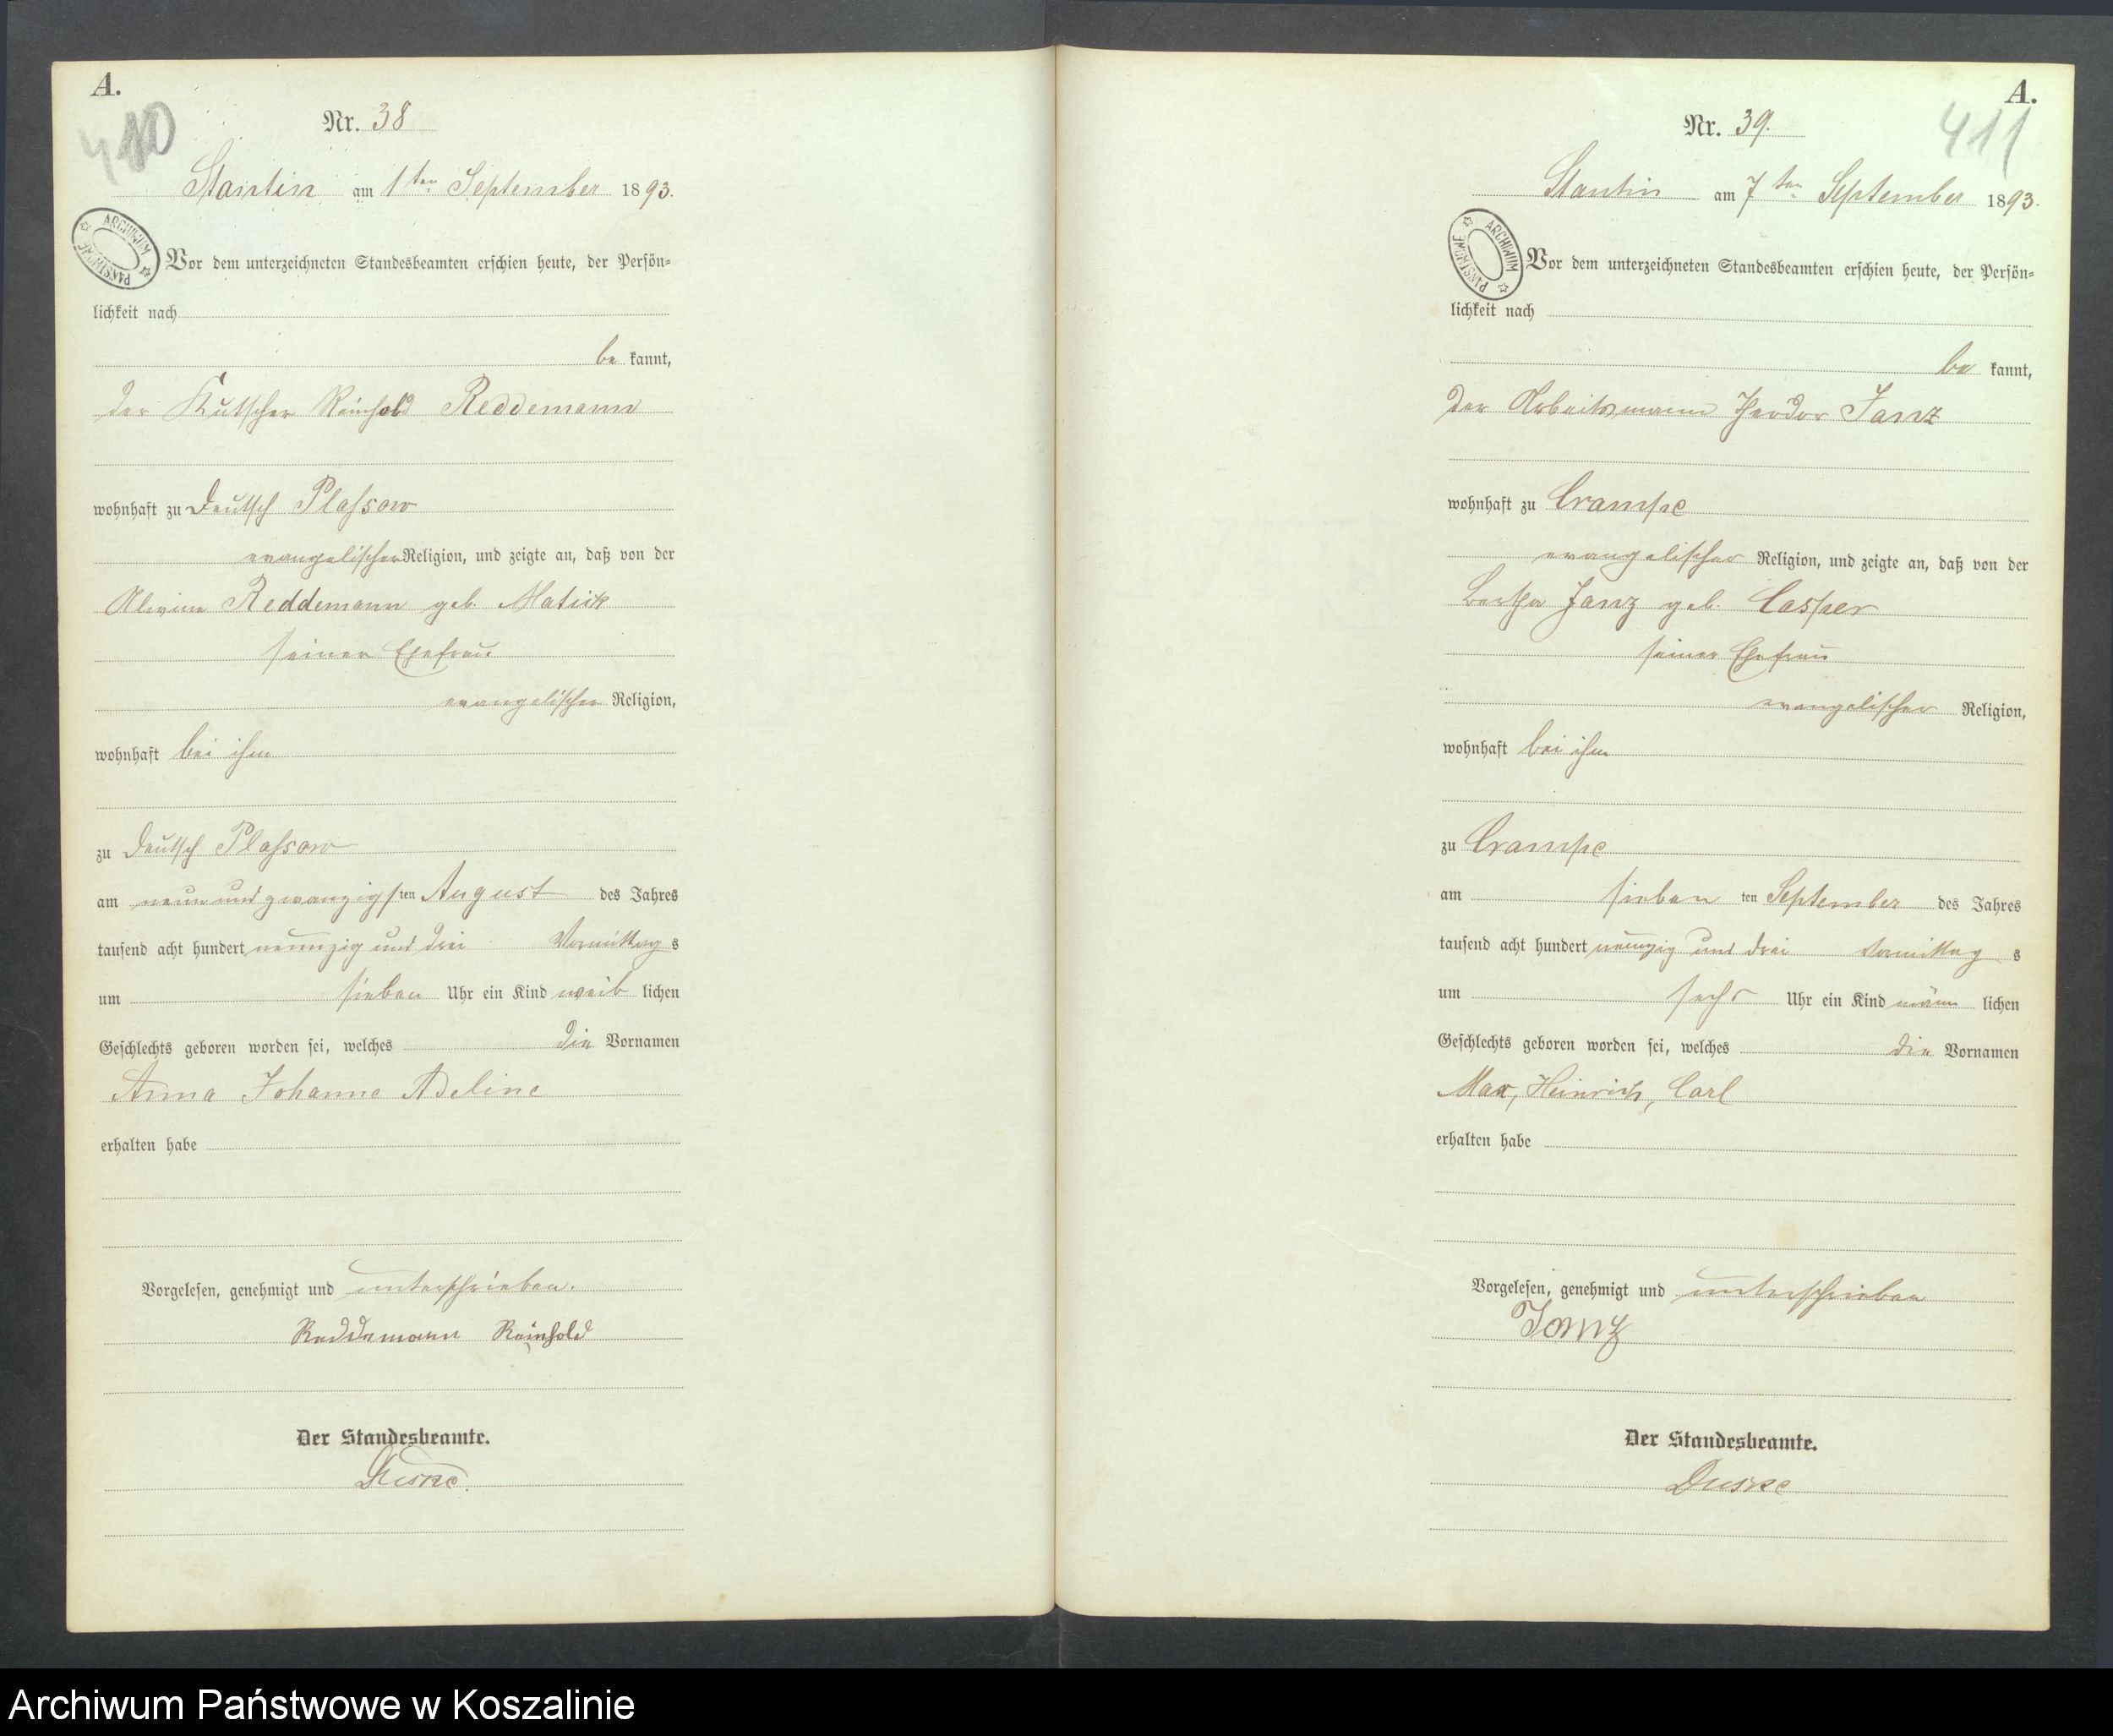 A.
410
Nr. 38
Stantin am 1ten September 1893.
ARCHIWUM PAŃSTWOWE
Vor dem unterzeichneten Standesbeamten erschien heute, der Persön=
lichkeit nach
be kannt,
der Kutscher Reinhold Reddemann
wohnhaft zu Deutsch Plassow
evangelischer Religion, und zeigte an, daß von der
Alwine Reddemann geb. Matick
seiner Ehefrau
evangelischer Religion,
wohnhaft bei ihm
zu Deutsch Plassow
am neun und zwanzigsten August des Jahres
tausend acht hundert neunzig und drei Vormittags
um sieben Uhr ein Kind weiblichen
Geschlechts geboren worden sei, welches die Vornamen
Anna Johanne Adeline
erhalten habe
Vorgelesen, genehmigt und unterschrieben.
Reddemann Reinhold
Der Standesbeamte.
A.
411
Nr. 39.
Stantin am 7ten September 1893.
ARCHIWUM PAŃSTWOWE
Vor dem unterzeichneten Standesbeamten erschien heute, der Persön=
lichkeit nach
be kannt,
der Arbeitsmann Theodor Janz
wohnhaft zu Crampe
evangelischer Religion, und zeigte an, daß von der
Bertha Janz geb. Casper
seiner Ehefrau
evangelischer Religion,
wohnhaft bei ihm
zu Crampe
am siebenten September des Jahres
tausend acht hundert neunzig und drei Vormittags
um sechs Uhr ein Kind männlichen
Geschlechts geboren worden sei, welches die Vornamen
Max, Heinrich, Carl
erhalten habe
Vorgelesen, genehmigt und unterschrieben
Janz
Der Standesbeamte.
Archiwum Państwowe w Koszalinie